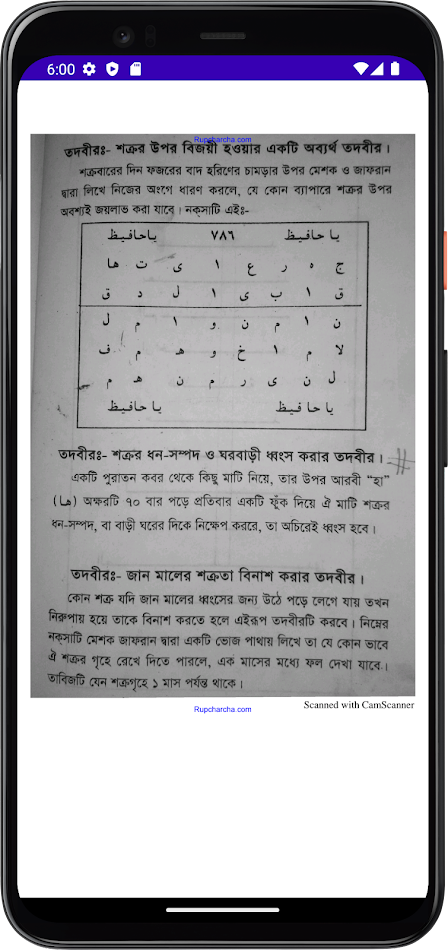 6:00
Rupcharcha.com
তদবীরঃ- শত্রুর উপর বিজয়ী হওয়ার একটি অব্যর্থ তদবীর।
শুক্রবারের দিন ফজরের বাদ হরিণের চামড়ার উপর মেশক ও জাফরান
দ্বারা লিখে নিজের অংগে ধারণ করলে, যে কোন ব্যাপারে শত্রুর উপর
অবশ্যই জয়লাভ করা যাবে। নক্সাটি এইঃ-
يا حافيظ ٧٨٦ ياحافيظ
ج ه ر ع ا ى ت ها
ق ا ب ى ا ل د ق
ن ا م ن و ا م ل
لا م ا خ و هـ م ف
ل ن ى ر م ن هـ م
يا حافيظ ياحافيظ
তদবীরঃ- শত্রুর ধন-সম্পদ ও ঘরবাড়ী ধ্বংস করার তদবীর।
একটি পুরাতন কবর থেকে কিছু মাটি নিয়ে, তার উপর আরবী “হা”
(ها) অক্ষরটি ৭০ বার পড়ে প্রতিবার একটি ফুঁক দিয়ে ঐ মাটি শত্রুর
ধন-সম্পদ, বা বাড়ী ঘরের দিকে নিক্ষেপ করবে, তা অচিরেই ধ্বংস হবে।
তদবীরঃ- জান মালের শত্রুতা বিনাশ করার তদবীর।
কোন শত্রু যদি জান মালের ধ্বংসের জন্য উঠে পড়ে লেগে যায় তখন
নিরুপায় হয়ে তাকে বিনাশ করতে হলে এইরূপ তদবীরটি করবে। নিম্নের
নক্সাটি মেশক জাফরান দ্বারা একটি ভোজ পাথায় লিখে তা যে কোন ভাবে
ঐ শত্রুর গৃহে রেখে দিতে পারলে, এক মাসের মধ্যে ফল দেখা যাবে।
তাবিজটি যেন শত্রুগৃহে ১ মাস পর্যন্ত থাকে।
Scanned with CamScanner
Rupcharcha.com